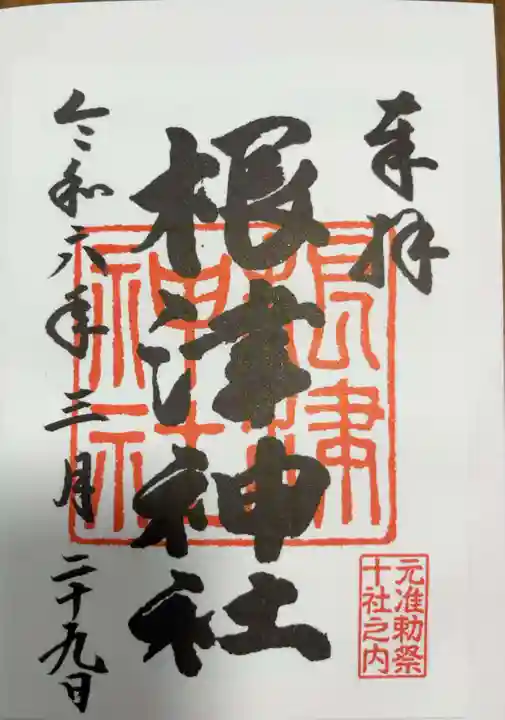 奉拝
根津神社
根津
神社
元准勅祭
十社之内
令和六年三月二十九日